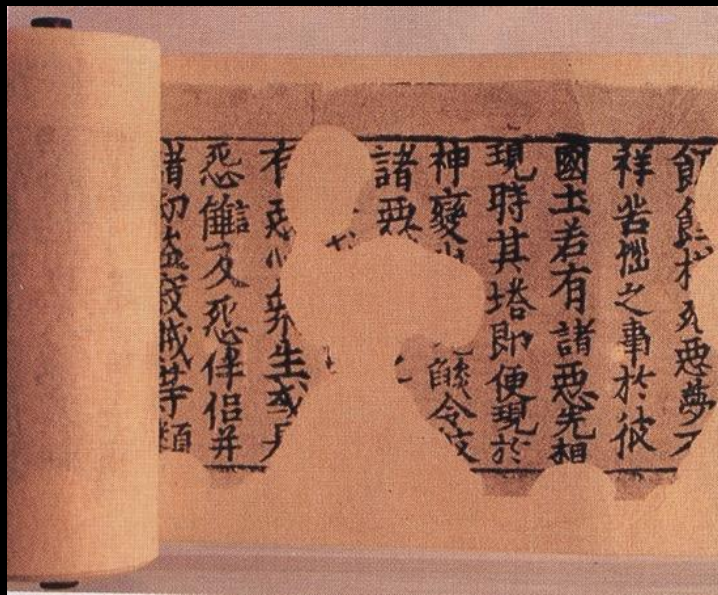 惡夢不
祥苦惱之事於彼
國土若有諸惡先相
現時其塔即便現於
神變令彼
諸惡
有惡心衆生或
怨讎及怨伴侶并
諸劫盜寇賊等類